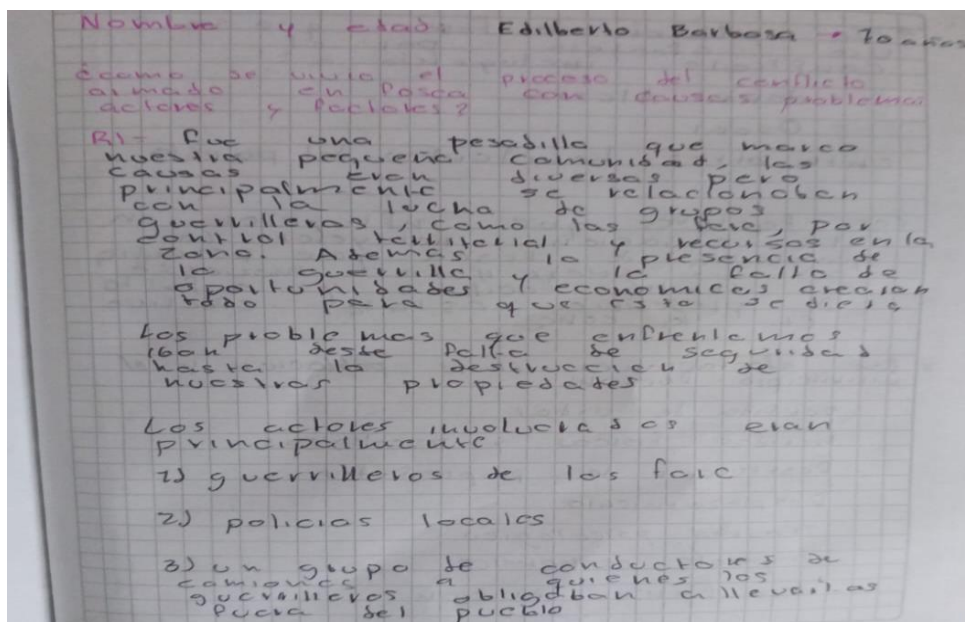 Nombre y edad: Edilberto Barbosa • 70 años
¿Como se vivio el proceso del conflicto
armado en Pasca con causas problemas
actores y factores?
R/- Fue una pesadilla que marco
nuestra pequeña comunidad, las
causas eran diversas pero
principalmente se relacionaban
con la lucha de grupos
guerrilleros, como las farc, por
control territorial y recursos en la
zona. Ademas la presencia de
la guerrilla y la falta de
oportunidades y economicas creaban
todo para que esto se diera
Los problemas que enfrentamos
iban desde falta de seguridad
hasta la destruccion de
nuestras propiedades
Los actores involucrados eran
principalmente
1) guerrilleros de las farc
2) policias locales
3) un grupo de conductores de
camiones a quienes los
guerrilleros obligaban a llevarlas
fuera del pueblo